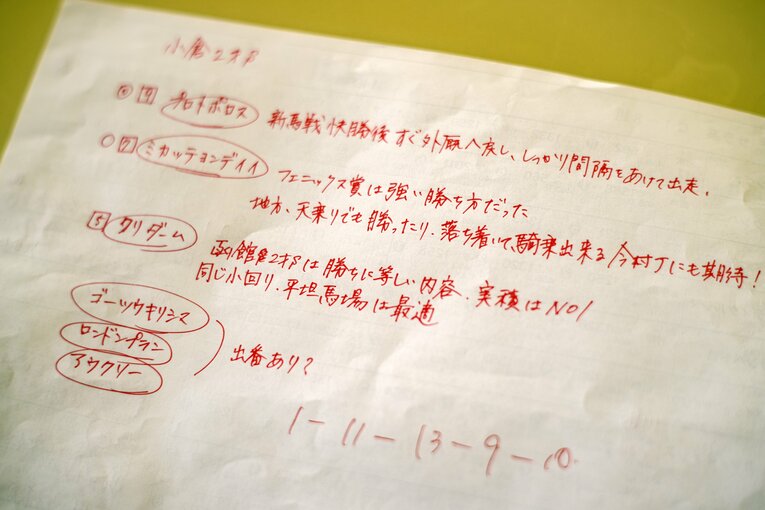 小倉2才S
◎ プロトポロス 新馬戦快勝後すぐ外厩へ戻し、しっかり間隔をあけて出走。
○ ミカッテヨンデイイ フェニックス賞は強い勝ち方だった
地方、天乗りでも勝ったり、落ち着いて騎乗出来る今村Jにも期待!
5 クリダーム 函館2才Sは勝ちに等しい内容。実積はNO1
同じ小回り、平坦馬場は最適
ゴーツウキリシマ
ロンドンプラン 出番あり?
アウクリー
1-11-13-9-10